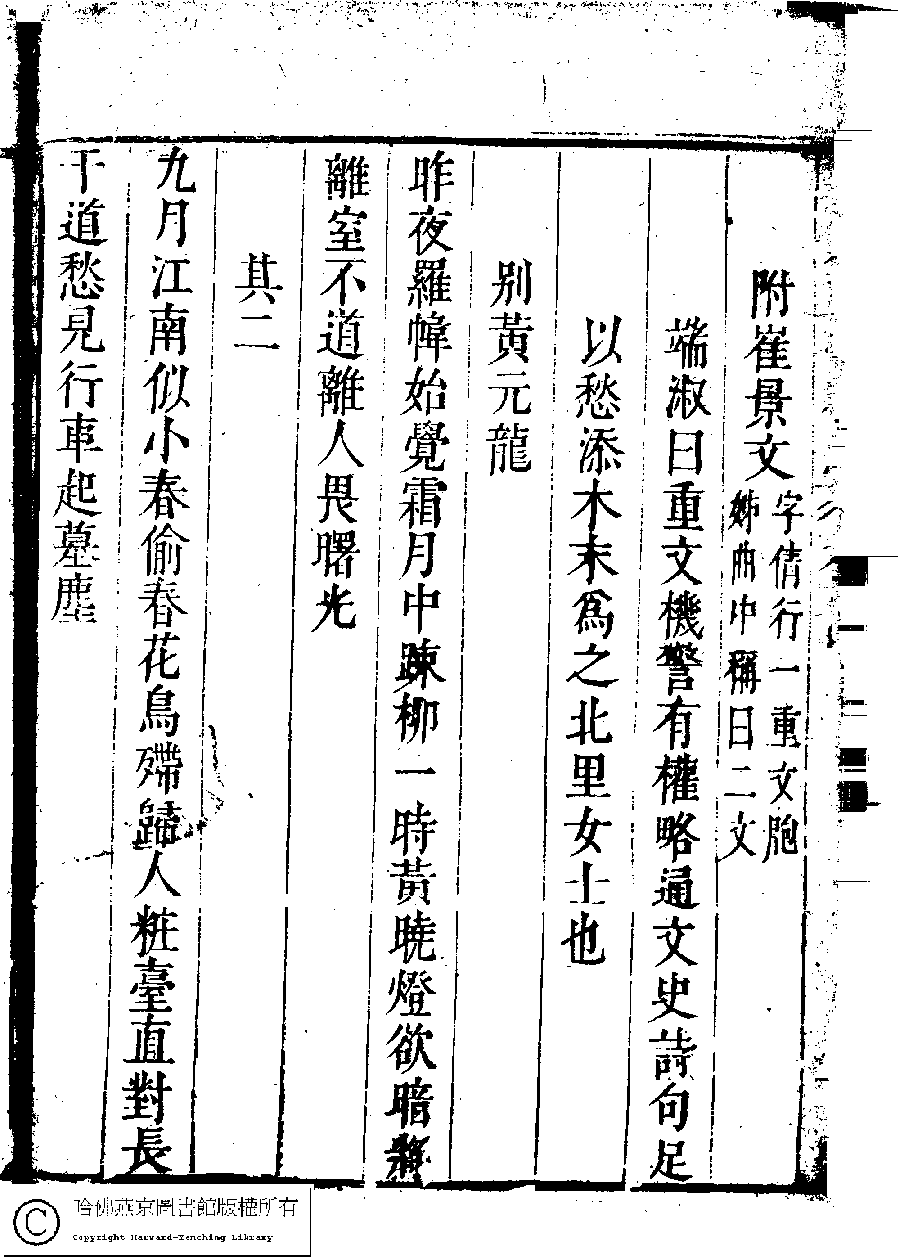 附崔景文字倩行一重文胞
姊曲中稱曰二文
端淑曰重文機警有權略通文史詩句足
以愁添木末為之北里女士也
別黃元龍
昨夜羅幃始覺霜月中踈柳一時黃曉燈欲暗將
離室不道離人畏曙光
其二
九月江南似小春偷春花鳥殢歸人粧臺直對長
干道愁見行車起墓塵
哈佛燕京圖書館版權所有
Copyright Harvard-Yenching Library